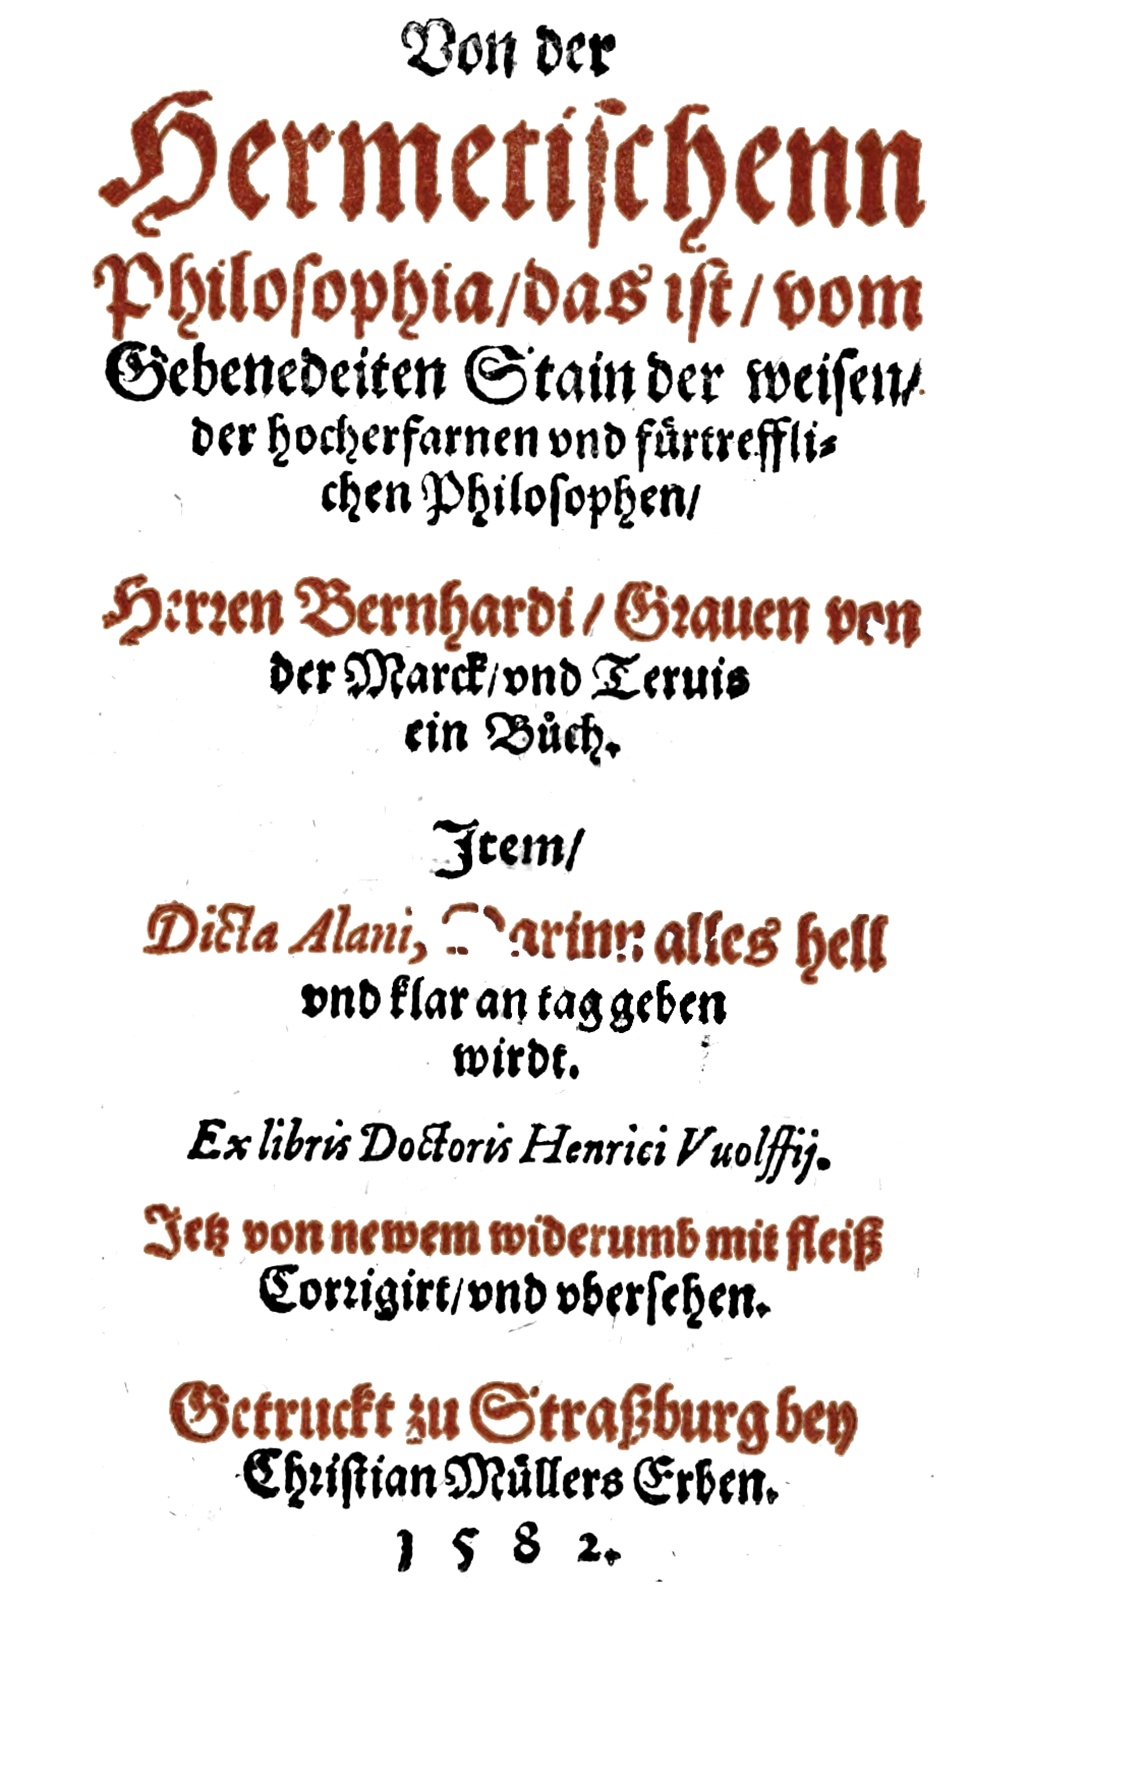 Von der
Hermetiſchenn
Philoſophia/das iſt/vom
Gebenedeiten Stain der weiſen/
der hocherfarnen vnd fuͤrtreffli⸗
chen Philoſophen/
Herren Bernhardi/Grauen von
der Marck/vnd Teruis
ein Buͦch.
Item/
Dicta Alani, Darinn alles hell
vnd klar an tag geben
wirdt.
Ex libris Doctoris Henrici Vuolffij.
Jetz von newem widerumb mit fleiß
Corrigirt/vnd vberſehen.
Getruckt zu Straßburg bey
Chriſtian Muͤllers Erben.
1582.